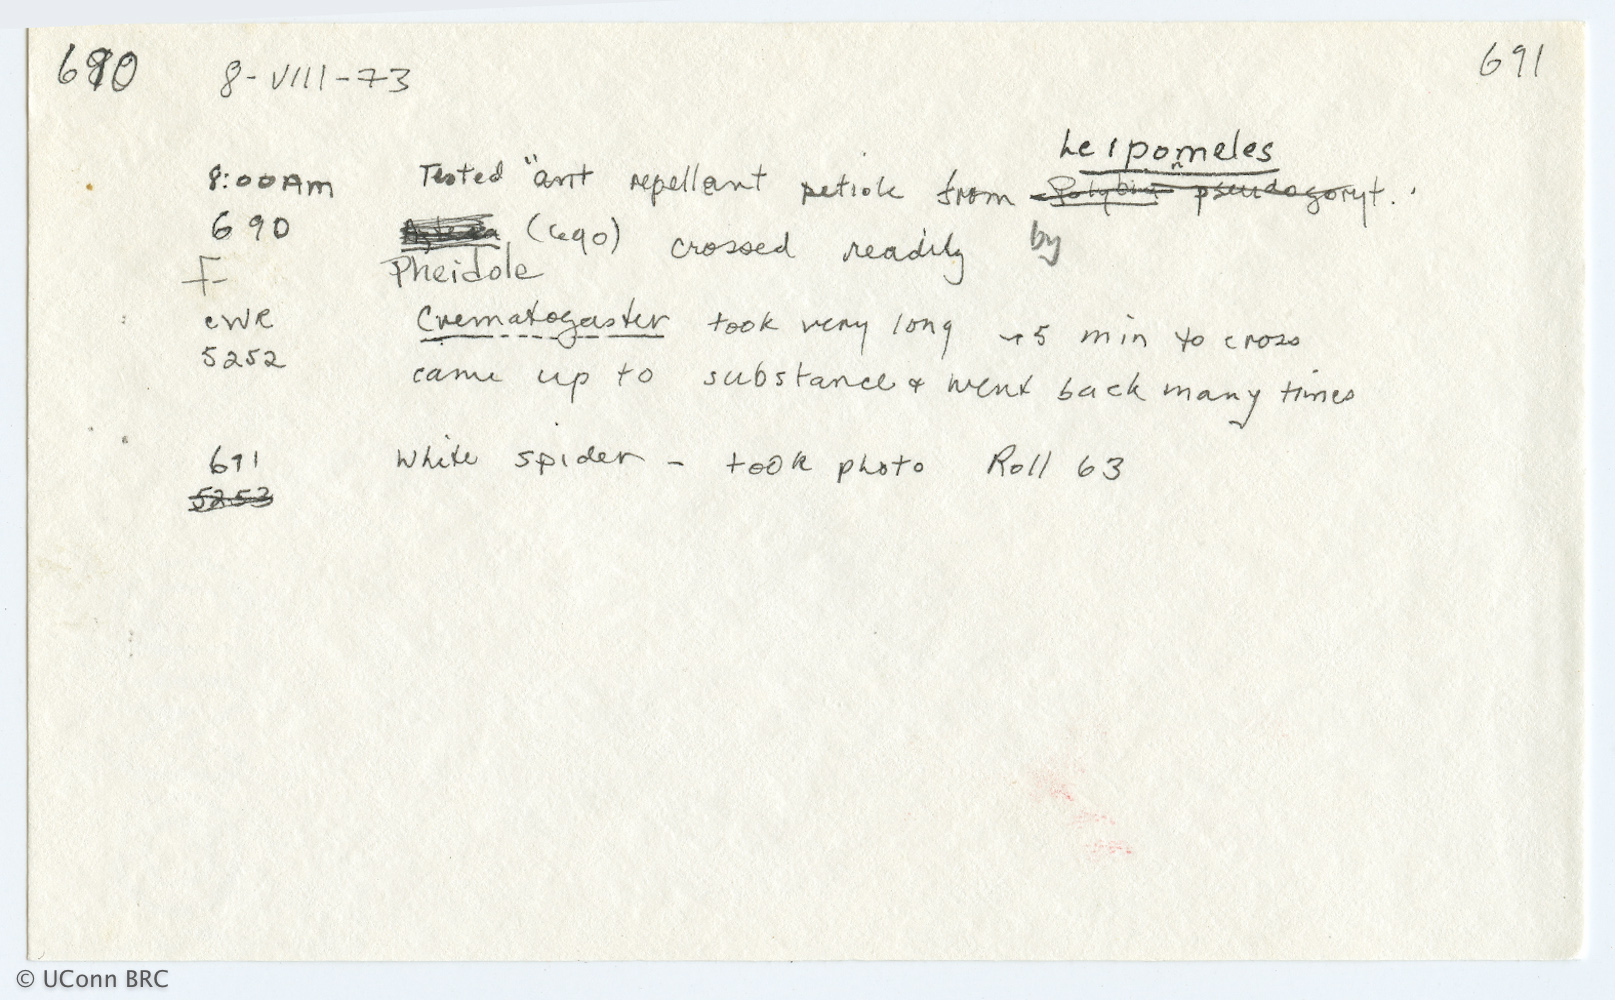 690 8-VIII-73 691
Leipomeles
8:00AM Tested "ant repellant petiole from Polybia pseudogoryt.
690 Azteca (690) crossed readily by
F Pheidole
CWR Crematogaster took very long ~5 min to cross
5252 came up to substance & went back many times
691 White spider - took photo Roll 63
5253
© UConn BRC